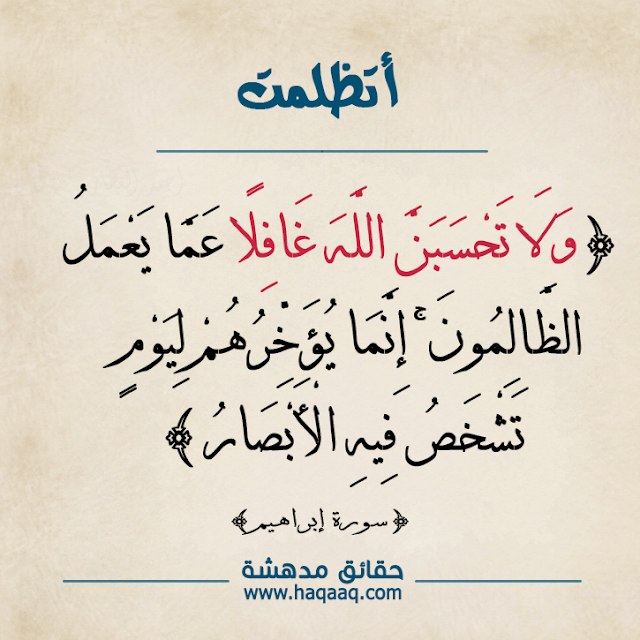 أتظلمت
﴿وَلَا تَحْسَبَنَّ اللَّهَ غَافِلًا عَمَّا يَعْمَلُ
الظَّالِمُونَ ۚ إِنَّمَا يُؤَخِّرُهُمْ لِيَوْمٍ
تَشْخَصُ فِيهِ الْأَبْصَارُ﴾
﴿سورة إبراهيم﴾
حقائق مدهشة
www.haqaaq.com